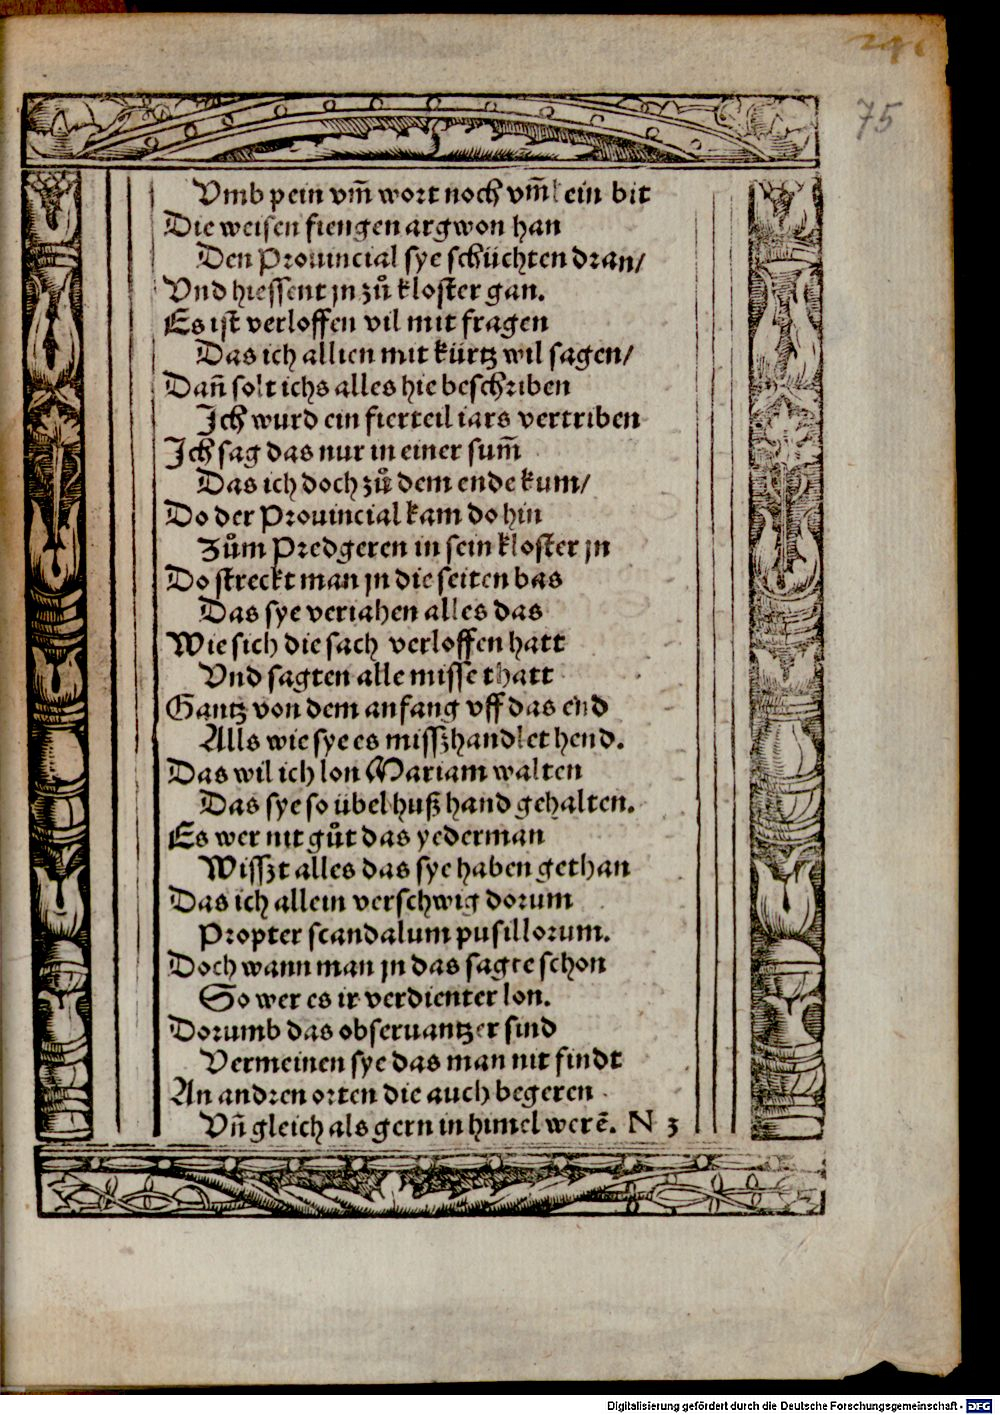 75
Vmb pein vm̃ wort noch vm̃ kein bit
Die weisen fiengen argwon han
Den Prouincial sye schüchten dran/
Vnd hiessent jn zů kloster gan.
Es ist verloffen vil mit fragen
Das ich allien mit kürtz wil sagen/
Dañ solt ichs alles hie beschriben
Ich wurd ein fierteil iars vertriben
Ich sag das nur in einer sum̃
Das ich doch zů dem ende kum/
Do der Prouincial kam do hin
Zům Predgeren in sein kloster jn
Do streckt man jn die seiten bas
Das sye veriahen alles das
Wie sich die sach verloffen hatt
Vnd sagten alle misse thatt
Gantz von dem anfang vff das end
Alls wie sye es misszhandlet hend.
Das wil ich lon Mariam walten
Das sye so übel huß hand gehalten.
Es wer nit gůt das yederman
Wisszt alles das sye haben gethan
Das ich allein verschwig dorum
Propter scandalum pusillorum.
Doch wann man jn das sagte schon
So wer es ir verdienter lon.
Dorumb das obseruantzer sind
Vermeinen sye das man nit findt
An andren orten die auch begeren
Vñ gleich als gern in himel werē. N 3
Digitalisierung gefördert durch die Deutsche Forschungsgemeinschaft - DFG